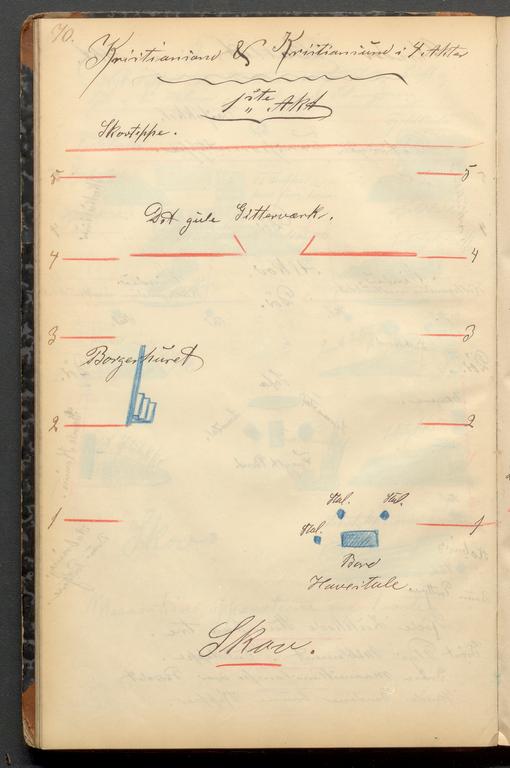 70.
Kristianiand & Kristianiund i 4 Akter
1ste Akt
Skovteppe.
5 5
Det gule Gitterværk.
4 4
3 3
Borgerhuset
2 2
Stol. Stol.
1 1
Stol.
Bord
Havestole.
Skov.